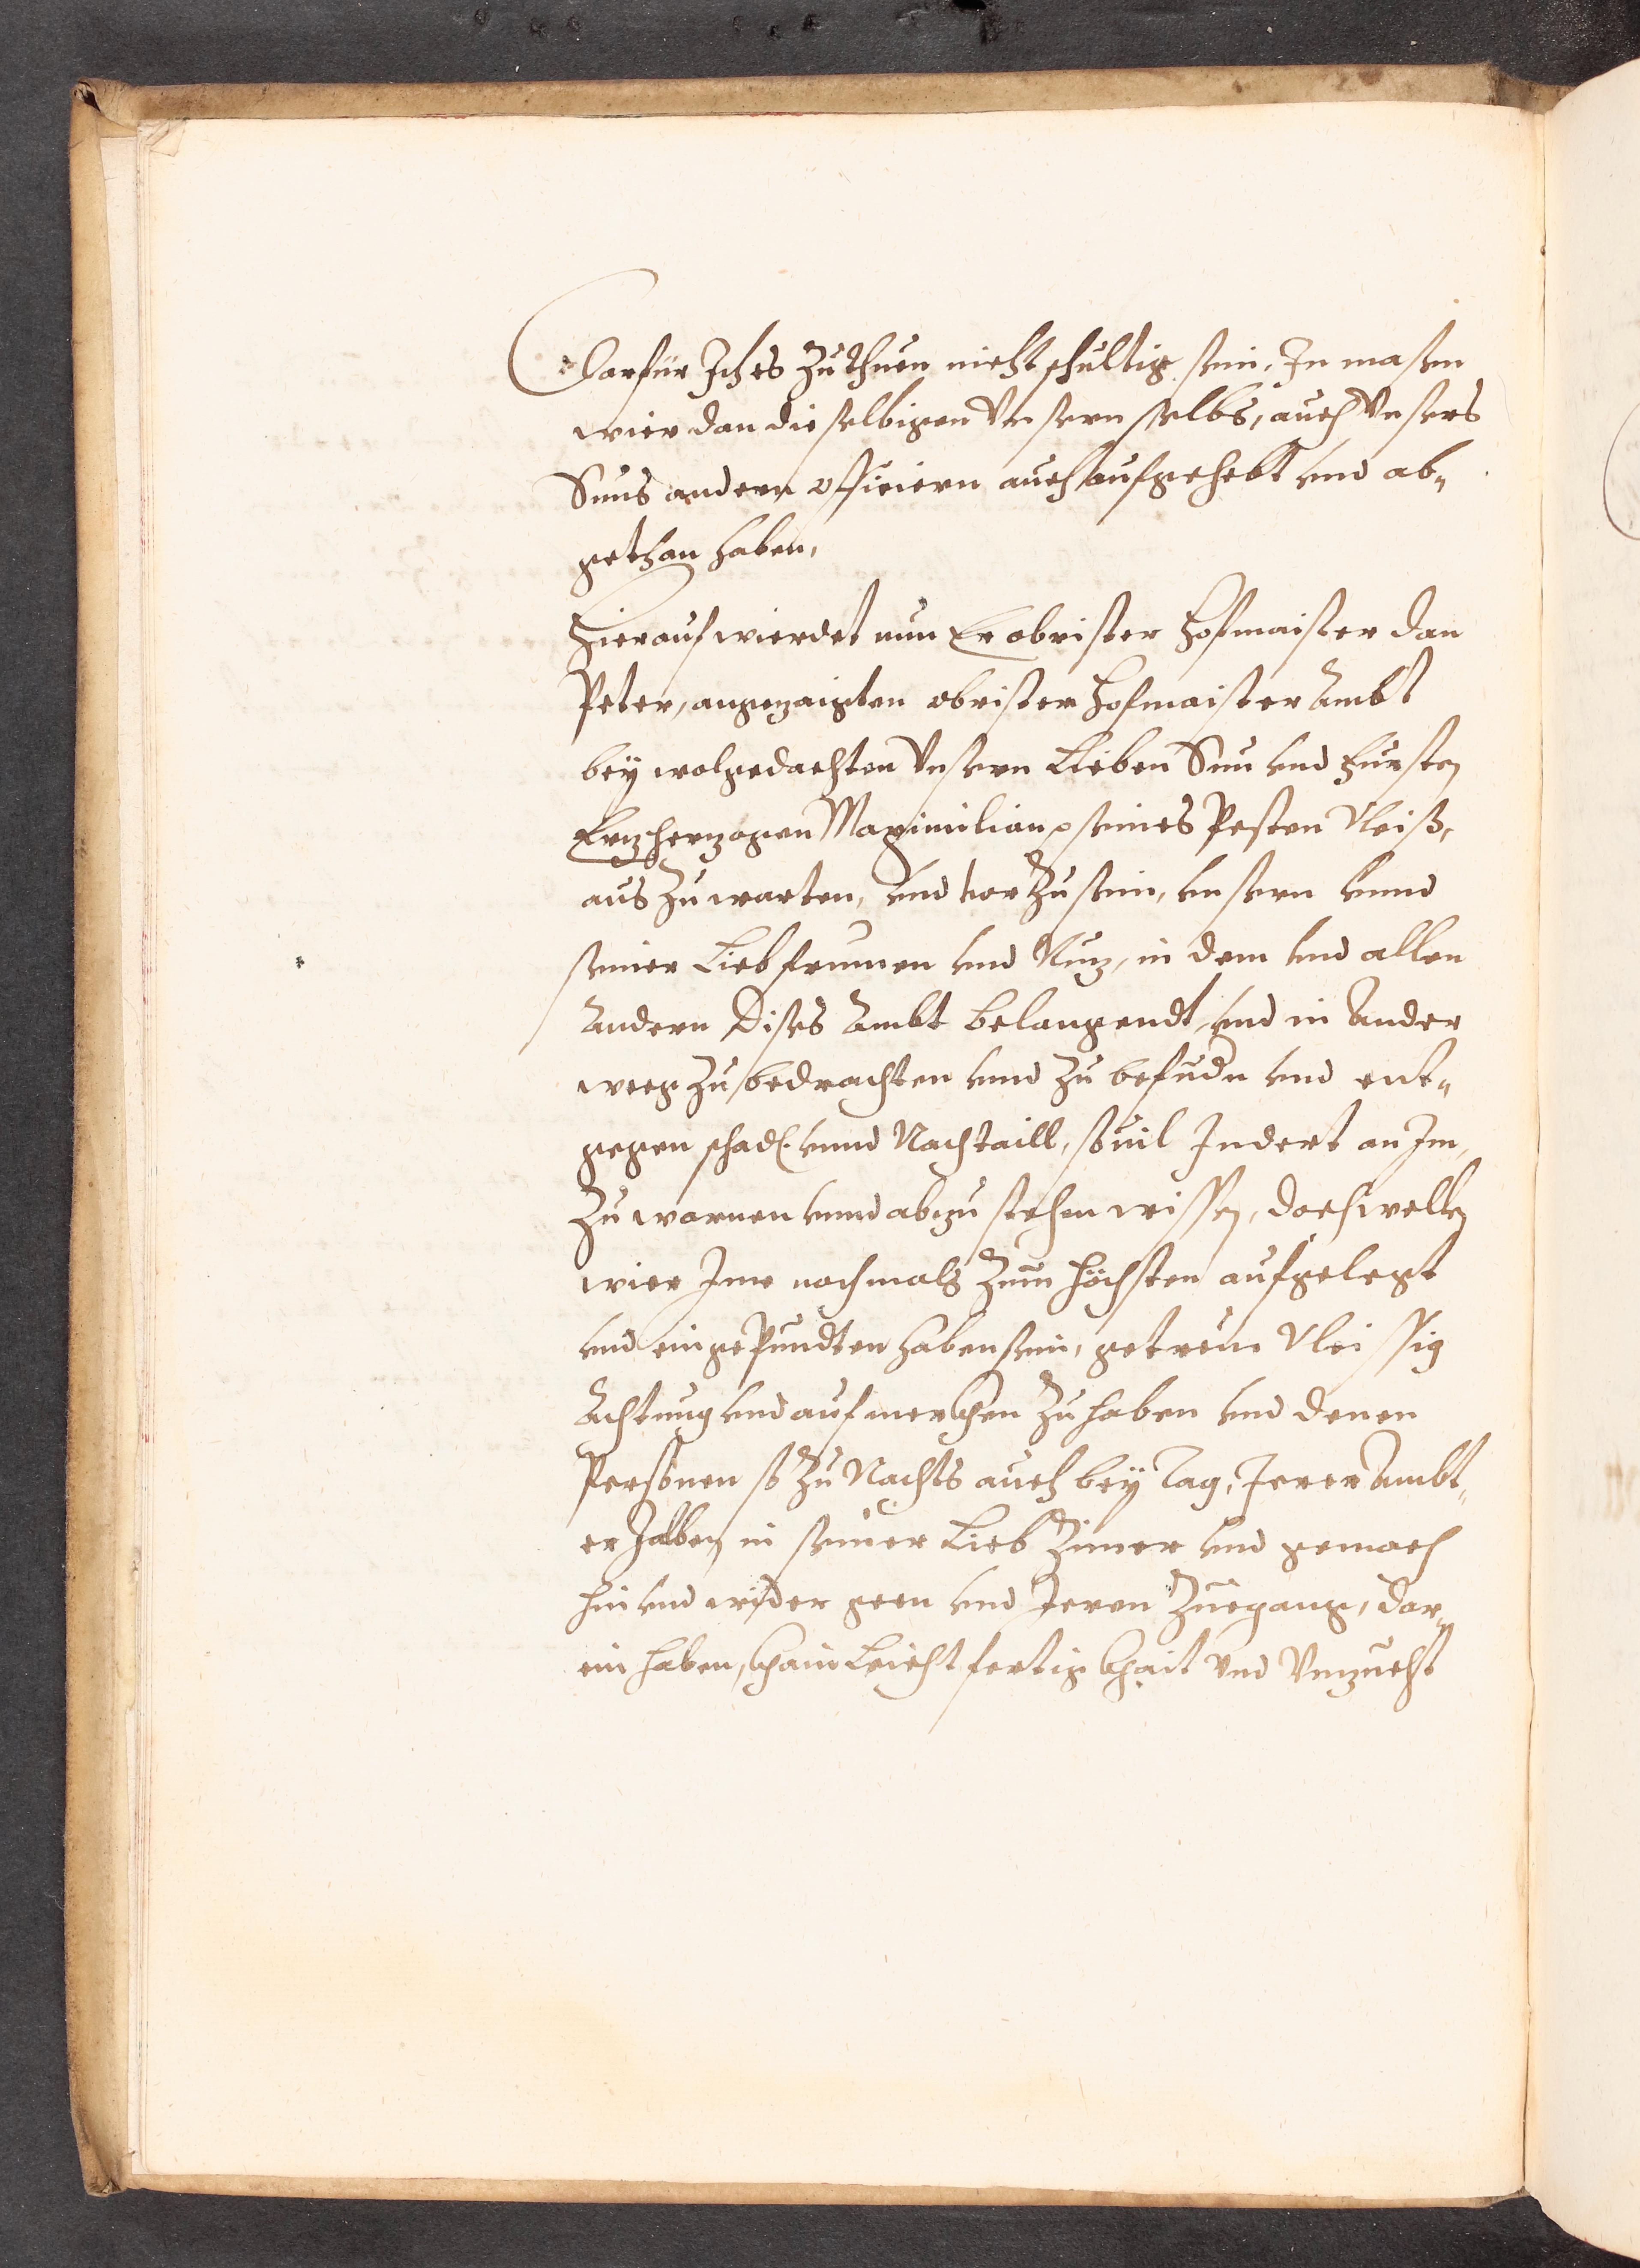 Darfür Ich es zuthuen nicht schultig sein, In masen
wier dan die selbigen Vnsern selbs, auch Vnsers
Suns andern officiern auch aufgehebt vnd ab„
gethan haben,
Hierauf wierdet nun Er obrister Hofmaister dan
Peter, angezaigten obristen Hofmaister Ambt
beÿ wolgedachten Vnsern Lieben Sun vnd Fürsten
Erzherzogen Maximilian seines Pesten Vleiß,
aus zu warten, vnd vor zu sein, vnsern vnnd
seiner Lieb frumen vnd Nuz, in dem vnd allen
Andern Dises Ambt belangendt, vnd in Ander
weeg zu bedrachten vnnd zu befudn vnd ent„
gegen schad. vnnd Nachtaill, souil Indert an Im,
zu warnen vnnd abzustehen wissen, doch wellen
wier Ime nochmals zum höchsten aufgelegt
vnd eingepundten haben sein, getreun Vleissig
Achtung vnd aufmerkhen zu haben vnd denen
Personen so zu Nachts auch beÿ Tag, Jerer Ambt„
er halben in seiner Lieb Zimer vnd gemach
hin vnd wider geen vnd Jeren Zuegang, dar„
ein haben, khain Leichtfertigkhait vnd Vnzucht